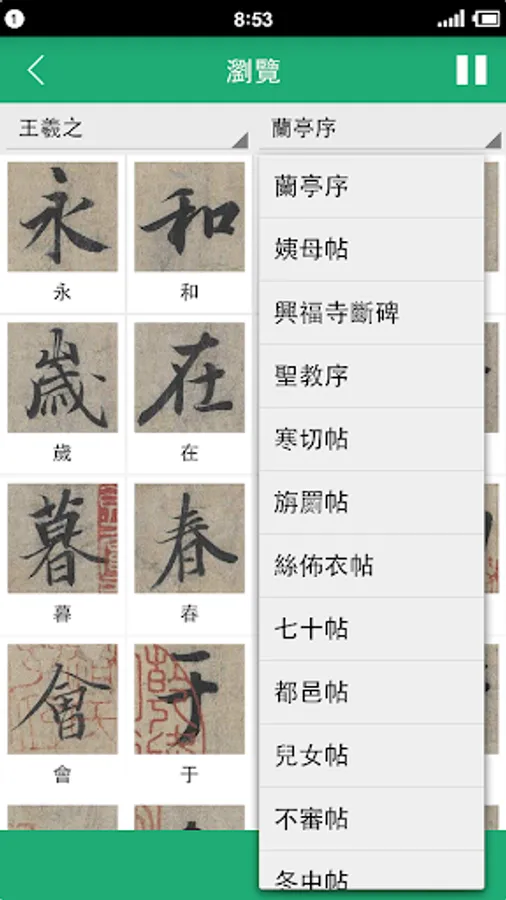 1 8:53
瀏覽
王羲之 蘭亭序
永 和
永 和
歲 在
歲 在
暮 春
暮 春
會 于
會 于
蘭亭序
姨母帖
興福寺斷碑
聖教序
寒切帖
旃罽帖
絲佈衣帖
七十帖
都邑帖
兒女帖
不審帖
冬中帖